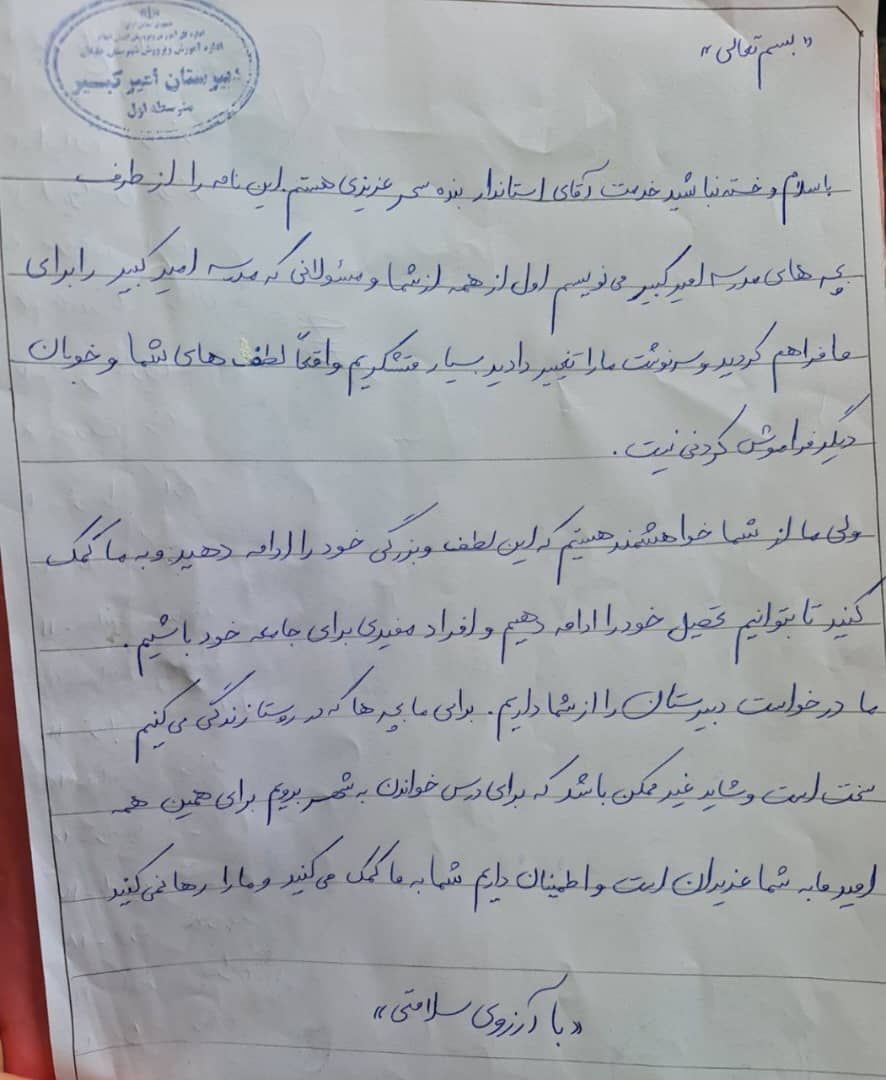 «بسم تعالی»
اداره آموزش و پرورش شهرستان
دبیرستان امیر کبیر
متوسطه اول
باسلام و خسته نباشید خدمت آقای استاندار بنده سحر عزیزی هستم. این نامه را از طرف
بچه های مدرسه امیر کبیر می نویسم اول از همه از شما و مسئولانی که مدرسه امیر کبیر را برای
ما فراهم کردید و سرنوشت ما را تغییر دادید بسیار متشکریم واقعاً لطف های شما و خوبان
دیگر فراموش کردنی نیست.
ولی ما از شما خواهشمند هستیم که این لطف و بزرگی خود را ادامه دهید و به ما کمک
کنید تا بتوانیم تحصیل خود را ادامه دهیم و افراد مفیدی برای جامعه خود باشیم.
ما درخواست دبیرستان را از شما داریم. برای ما بچه ها که در روستا زندگی می کنیم
سخت است و شاید غیر ممکن باشد که برای درس خواندن به شهر برویم برای همین همه
امید ما به شما عزیزان است و اطمینان داریم شما به ما کمک می کنید و ما را رها نمی کنید
«با آرزوی سلامتی»